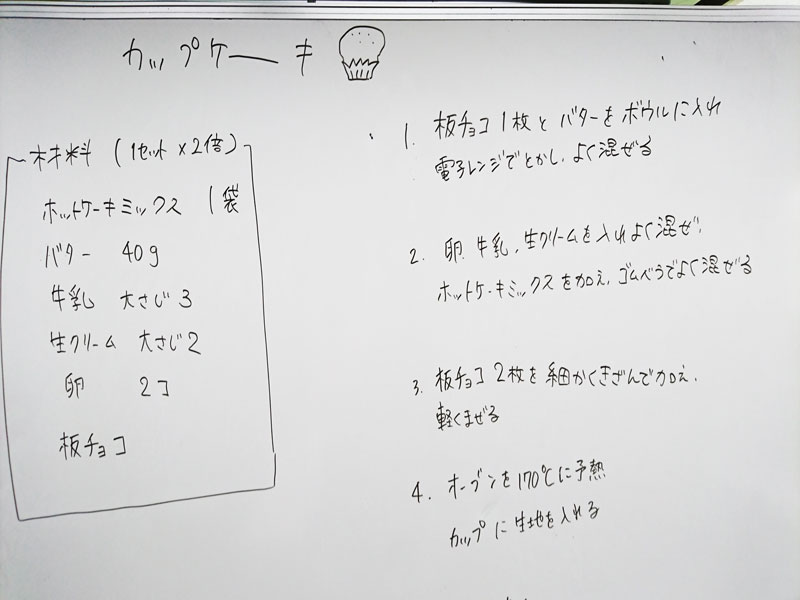 カップケーキ
材料（1セット×2倍）
ホットケーキミックス 1袋
バター 40g
牛乳 大さじ3
生クリーム 大さじ2
卵 2コ
板チョコ
1. 板チョコ1枚とバターをボウルに入れ
電子レンジでとかし、よく混ぜる
2. 卵、牛乳、生クリームを入れよく混ぜ、
ホットケーキミックスを加え、ゴムべらでよく混ぜる
3. 板チョコ2枚を細かくきざんで加え、
軽くまぜる
4. オーブンを170℃に予熱
カップに生地を入れる